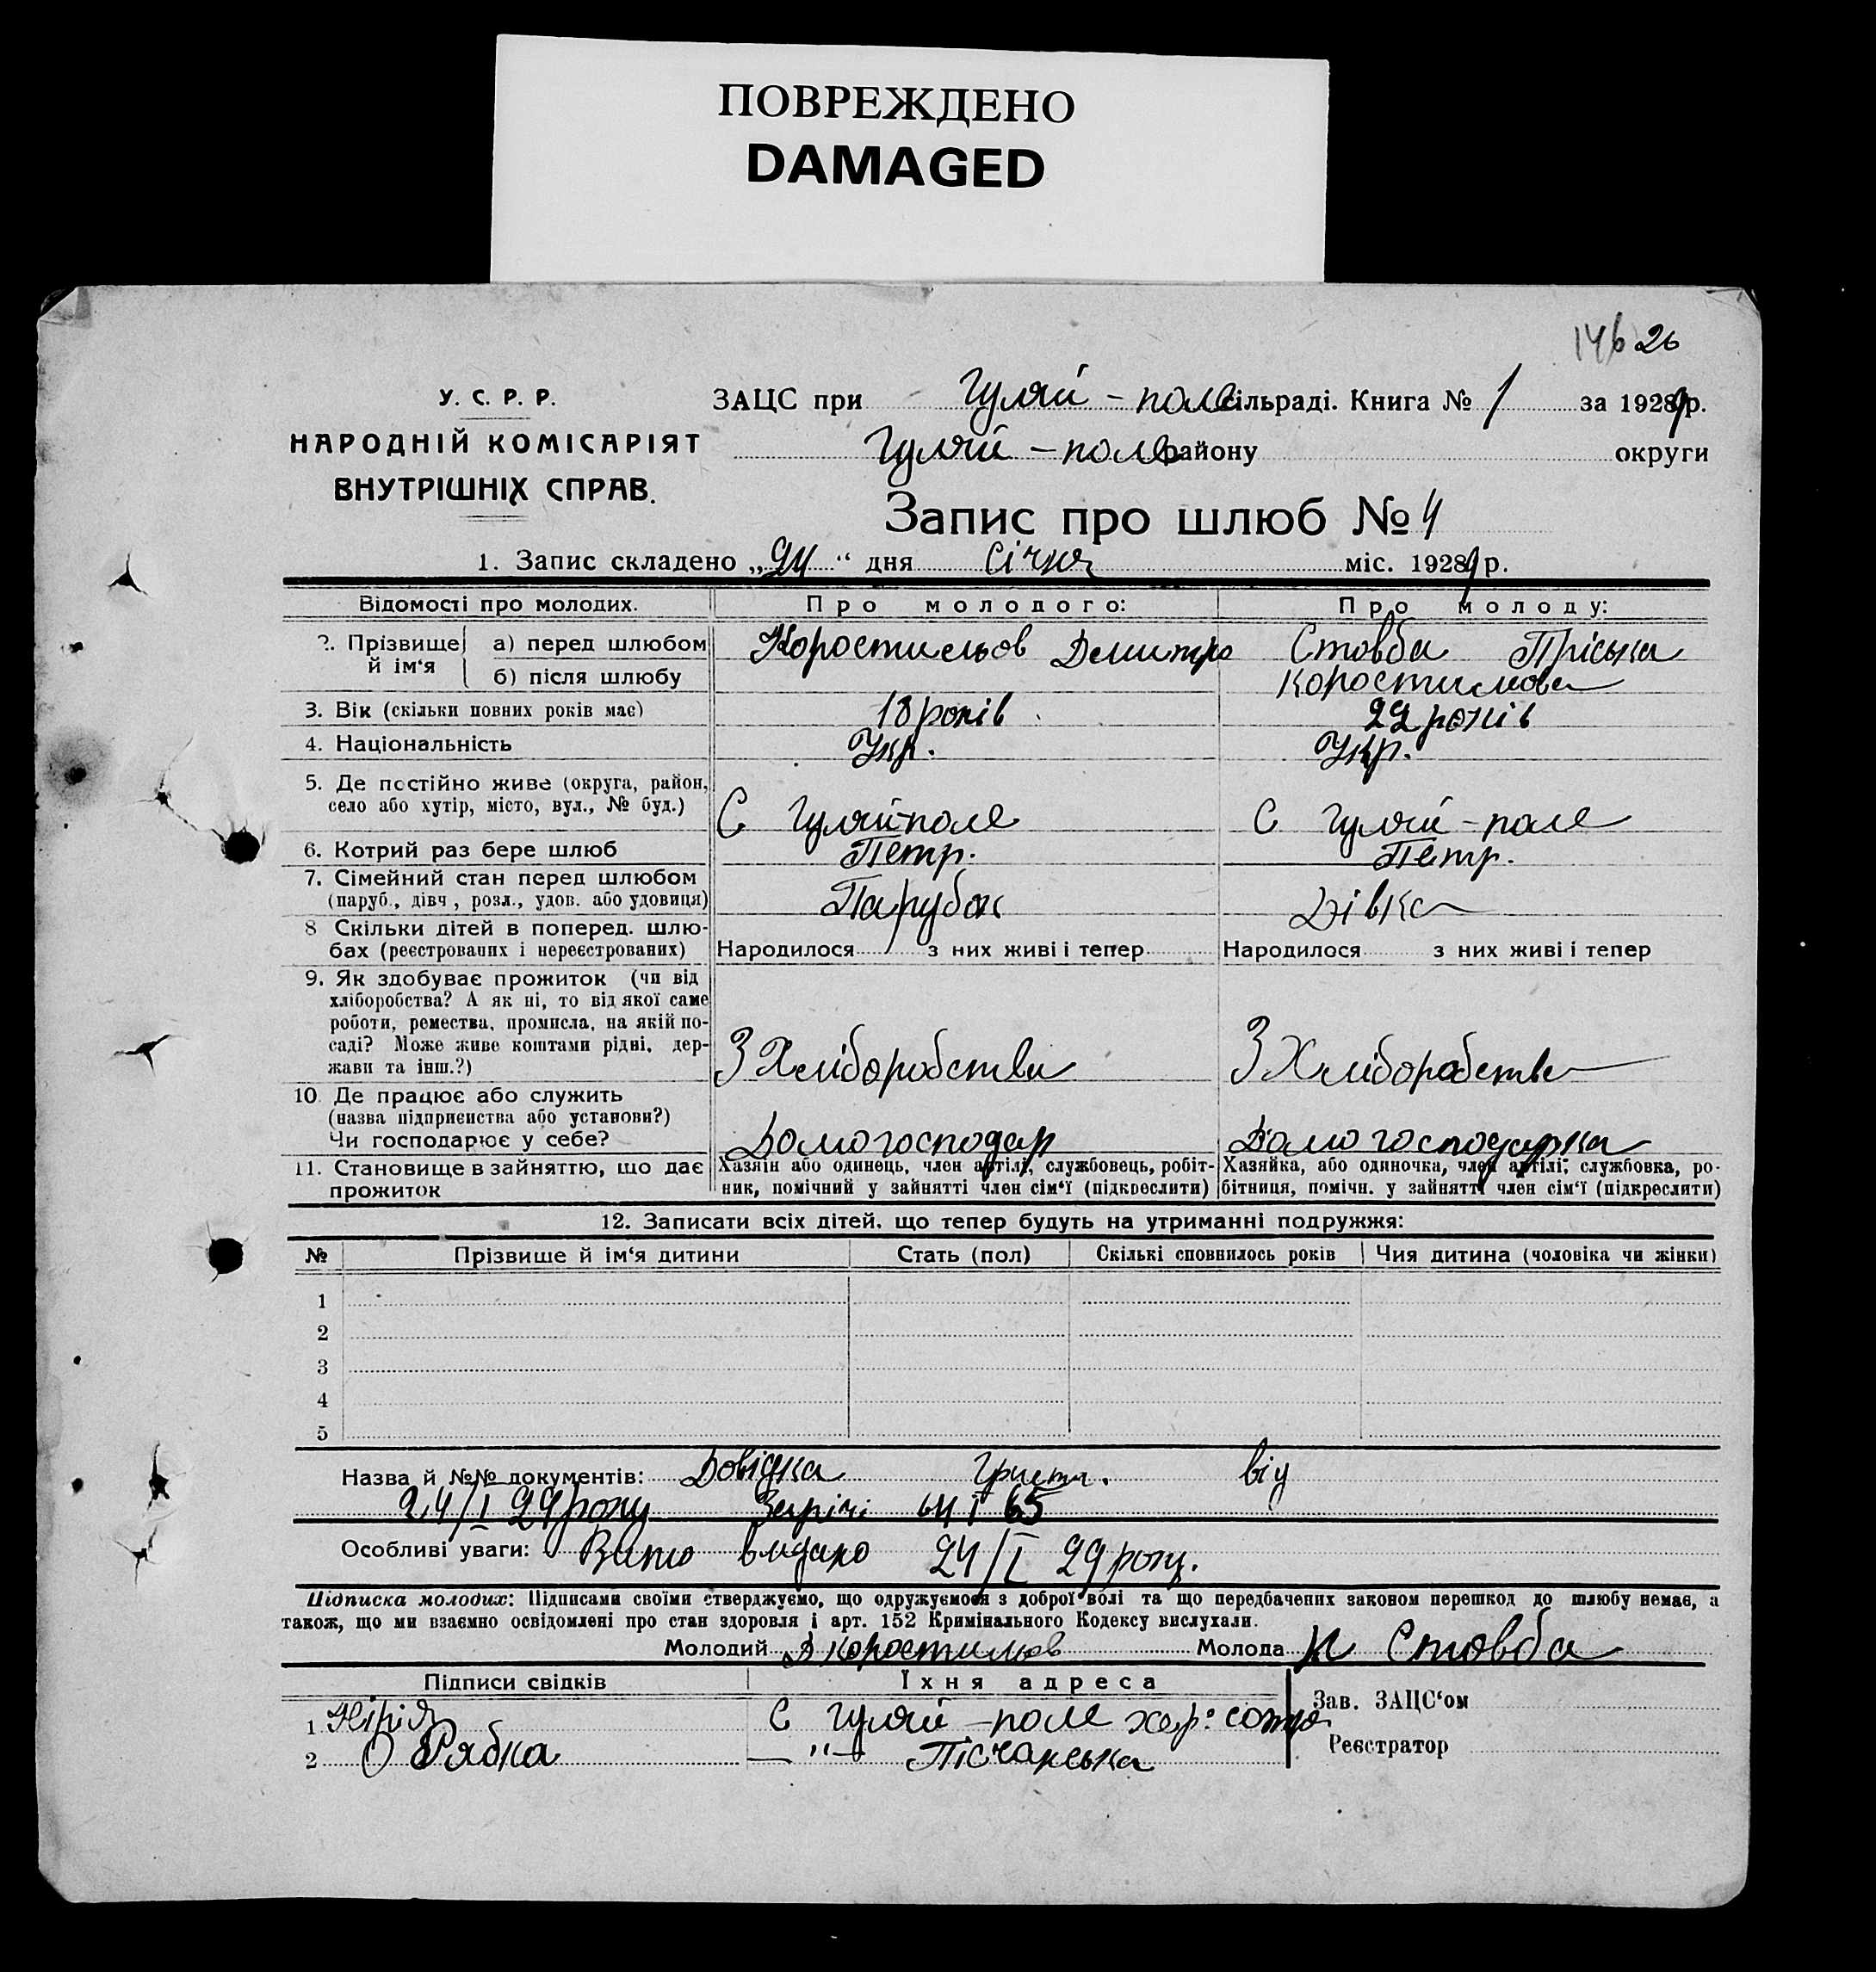 ПОВРЕЖДЕНО
DAMAGED
146 26
У. С. Р. Р.
НАРОДНІЙ КОМІСАРІЯТ
ВНУТРІШНІХ СПРАВ.
ЗАЦС при Гуляй-поле сільраді. Книга № 1 за 1929 р.
Гуляй-поле району округи
Запис про шлюб № 4
1. Запис складено „24“ дня Січня міс. 1929 р.
Відомості про молодих. Про молодого: Про молоду:
2. Прізвище й ім‘я а) перед шлюбом Коростильов Дмитро Стовба Пріська
б) після шлюбу Коростильова
3. Вік (скільки повних років має) 18 років 22 років
4. Національність Укр. Укр.
5. Де постійно живе (округа, район,
село або хутір, місто, вул., № буд.) С Гуляй-поле С Гуляй-поле
6. Котрий раз бере шлюб Петр. Петр.
7. Сімейний стан перед шлюбом
(паруб., дівч, розл., удов. або удовиця) Парубок Дівка
8 Скільки дітей в поперед. шлю-
бах (реєстрованих і нереєстрованих) Народилося з них живі і тепер Народилося з них живі і тепер
9. Як здобуває прожиток (чи від
хліборобства? А як ні, то від якої саме
роботи, ремества, промисла, на якій по-
саді? Може живе коштами рідні, дер-
жави та інш.?) З Хліборобства З Хліборобства
10. Де працює або служить
(назва підприємства або установи?)
Чи господарює у себе? Домогосподар Домогосподарка
11. Становище в зайняттю, що дає
прожиток
Хазяїн або одинець, член артілі, службовець, робіт-
ник, помічний у зайнятті член сім‘ї (підкреслити)
Хазяйка, або одиночка, член артілі, службовка, ро-
бітниця, помічн. у зайнятті член сім‘ї (підкреслити)
12. Записати всіх дітей, що тепер будуть на утриманні подружжя:
№ Прізвище й ім‘я дитини Стать (пол) Скількі сповнилось років Чия дитина (чоловіка чи жінки)
1
2
3
4
5
Назва й №№ документів: Довідка від
24/I 29 року 64 і 65
Особливі уваги: видано 24/I 29 року.
Підписка молодих: Підписами своїми стверджуємо, що одружуємося з доброї волі та що передбачених законом перешкод до шлюбу немає, а
також, що ми взаємно освідомлені про стан здоровля і арт. 152 Кримінального Кодексу вислухали.
Молодий Д Коростильов Молода П Стовба
Підписи свідків Їхня адреса
1 С Гуляй-поле хер: сотня
2 Рябка — "— Пісчанська
Зав. ЗАЦС‘ом
Реєстратор